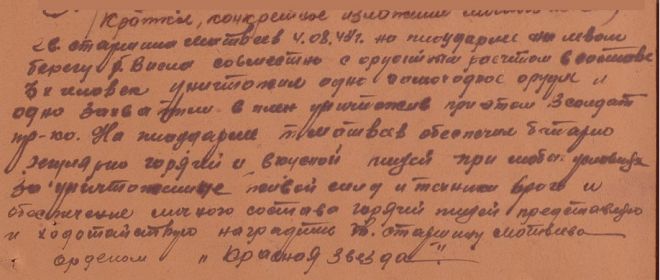 (Краткое, конкретное изложение личного
гв. старшина Матвеев 4.08.44г. на плацдарме на левом
берегу р. Висла совместно с орудийным расчетом в составе
3х человек уничтожил одно самоходное орудие и
одно захватили в плен уничтожив при этом 3 солдат
пр-ка. На плацдарме т. Матвеев обеспечил батарею
горячей и вкусной пищей при любых условиях
За уничтожение живой силы и техники врага и
обеспечение личного состава горячей пищей представляю
и ходотайствую наградить гв. старшину Матвеева
орденом "Красная Звезда".